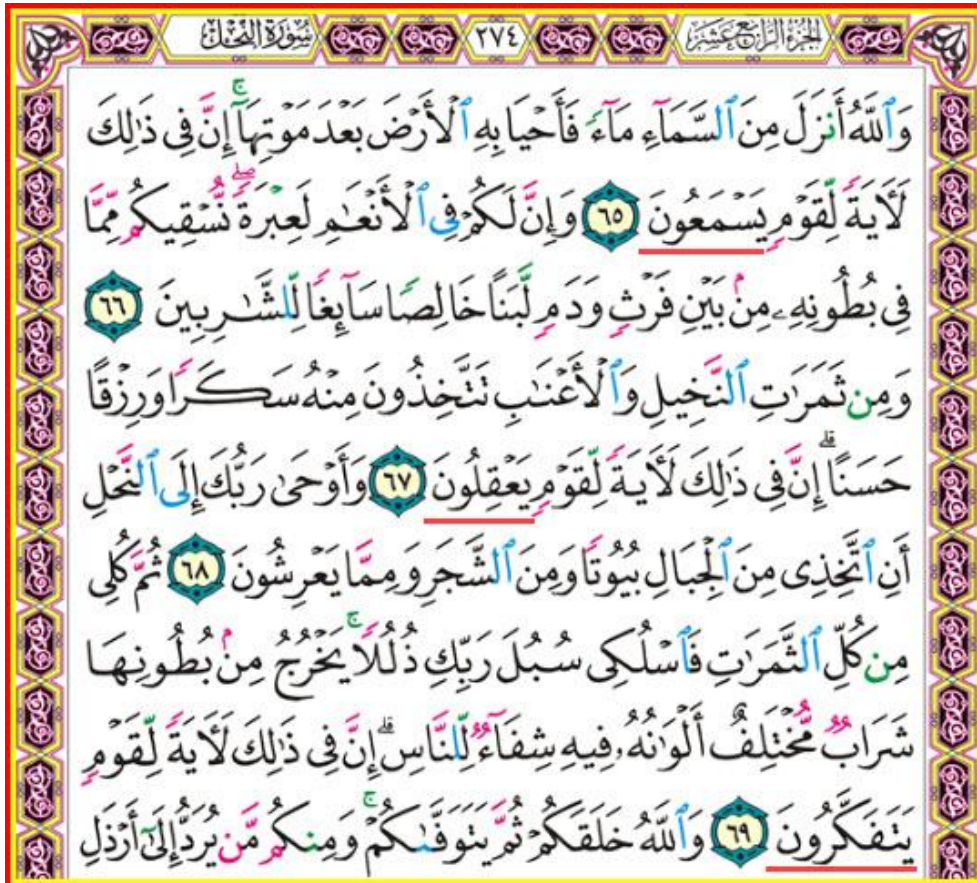 الجزء الرابع عشر ٢٧٤ سورة النحل
وَٱللَّهُ أَنزَلَ مِنَ ٱلسَّمَآءِ مَآءً فَأَحْيَا بِهِ ٱلْأَرْضَ بَعْدَ مَوْتِهَآ ۚ إِنَّ فِى ذَٰلِكَ
لَـَٔايَةً لِّقَوْمٍ يَسْمَعُونَ ٦٥ وَإِنَّ لَكُمْ فِى ٱلْأَنْعَـٰمِ لَعِبْرَةً ۖ نُّسْقِيكُم مِّمَّا
فِى بُطُونِهِۦ مِنۢ بَيْنِ فَرْثٍ وَدَمٍ لَّبَنًا خَالِصًا سَآئِغًا لِّلشَّـٰرِبِينَ ٦٦
وَمِن ثَمَرَٰتِ ٱلنَّخِيلِ وَٱلْأَعْنَـٰبِ تَتَّخِذُونَ مِنْهُ سَكَرًا وَرِزْقًا
حَسَنًا ۗ إِنَّ فِى ذَٰلِكَ لَـَٔايَةً لِّقَوْمٍ يَعْقِلُونَ ٦٧ وَأَوْحَىٰ رَبُّكَ إِلَى ٱلنَّحْلِ
أَنِ ٱتَّخِذِى مِنَ ٱلْجِبَالِ بُيُوتًا وَمِنَ ٱلشَّجَرِ وَمِمَّا يَعْرِشُونَ ٦٨ ثُمَّ كُلِى
مِن كُلِّ ٱلثَّمَرَٰتِ فَٱسْلُكِى سُبُلَ رَبِّكِ ذُلُلًا ۚ يَخْرُجُ مِنۢ بُطُونِهَا
شَرَابٌ مُّخْتَلِفٌ أَلْوَٰنُهُۥ فِيهِ شِفَآءٌ لِّلنَّاسِ ۗ إِنَّ فِى ذَٰلِكَ لَـَٔايَةً لِّقَوْمٍ
يَتَفَكَّرُونَ ٦٩ وَٱللَّهُ خَلَقَكُمْ ثُمَّ يَتَوَفَّىٰكُمْ ۚ وَمِنكُم مَّن يُرَدُّ إِلَىٰٓ أَرْذَلِ